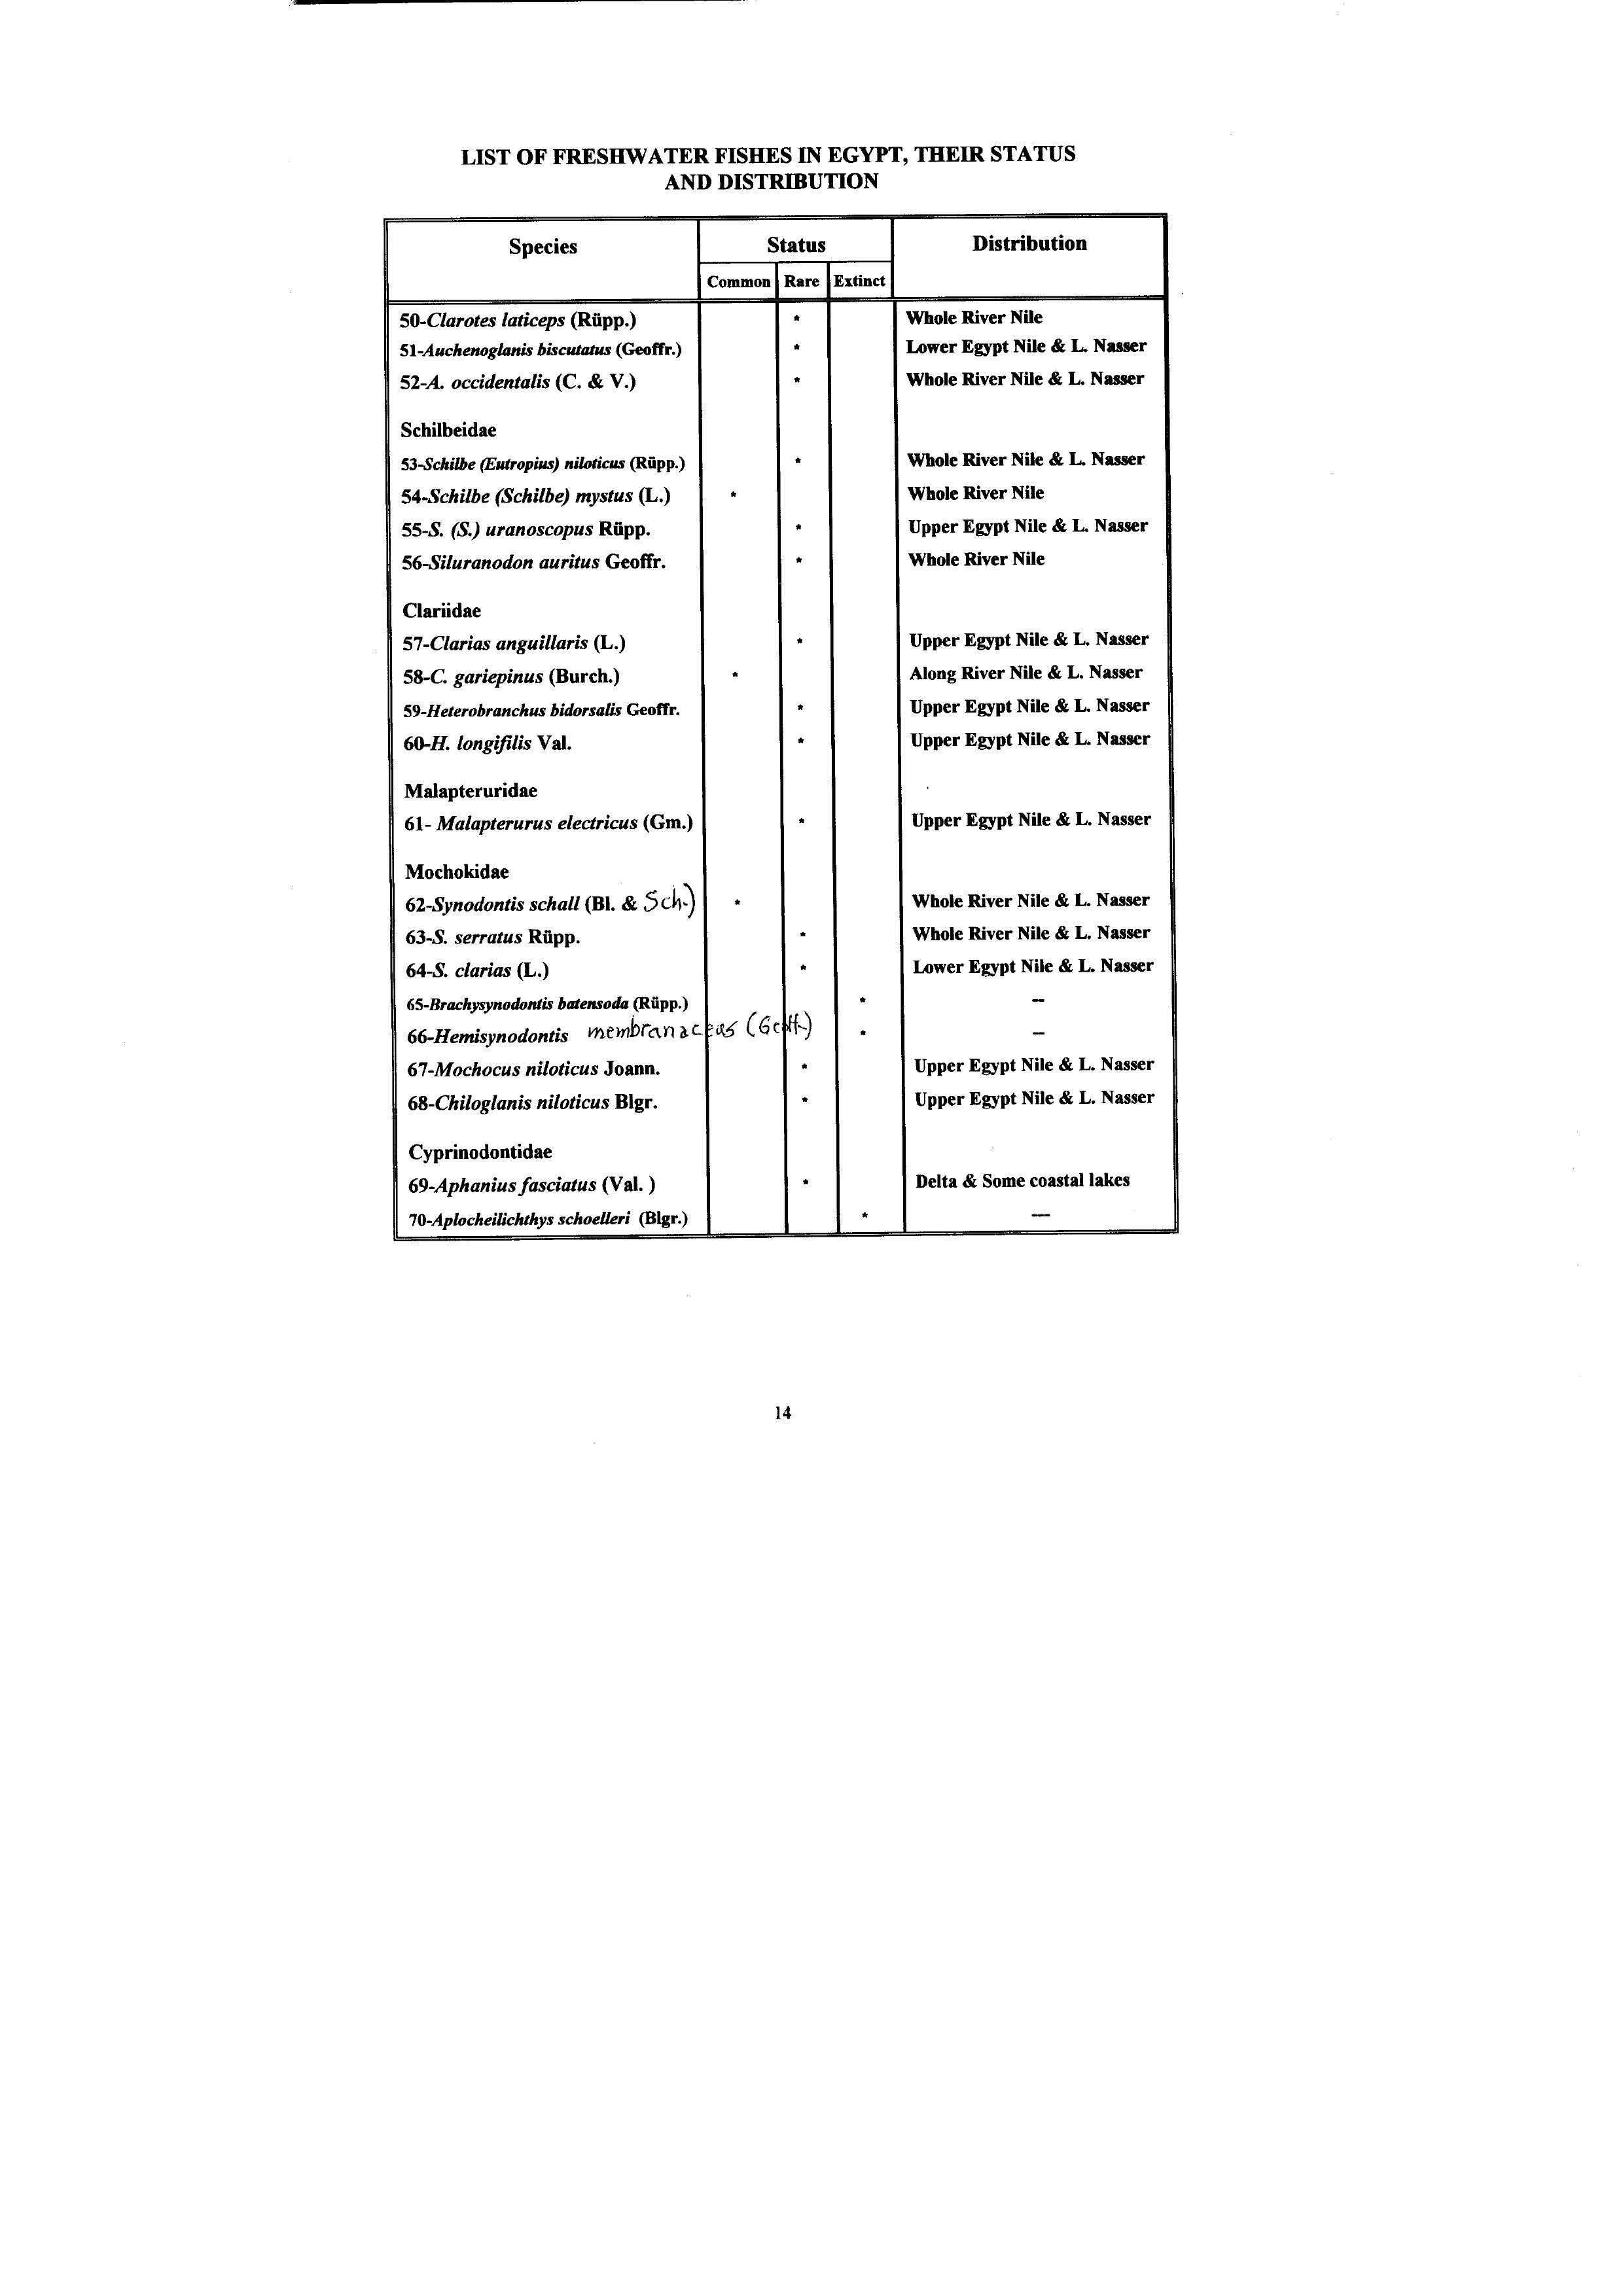 LIST OF FRESHWATER FISHES IN EGYPT, THEIR STATUS
AND DISTRIBUTION
Species Status Distribution
Common Rare Extinct
50-Clarotes laticeps (Rüpp.) * Whole River Nile
51-Auchenoglanis biscutatus (Geoffr.) * Lower Egypt Nile & L. Nasser
52-A. occidentalis (C. & V.) * Whole River Nile & L. Nasser
Schilbeidae
53-Schilbe (Eutropius) niloticus (Rüpp.) * Whole River Nile & L. Nasser
54-Schilbe (Schilbe) mystus (L.) * Whole River Nile
55-S. (S.) uranoscopus Rüpp. * Upper Egypt Nile & L. Nasser
56-Siluranodon auritus Geoffr. * Whole River Nile
Clariidae
57-Clarias anguillaris (L.) * Upper Egypt Nile & L. Nasser
58-C. gariepinus (Burch.) * Along River Nile & L. Nasser
59-Heterobranchus bidorsalis Geoffr. * Upper Egypt Nile & L. Nasser
60-H. longifilis Val. * Upper Egypt Nile & L. Nasser
Malapteruridae
61- Malapterurus electricus (Gm.) * Upper Egypt Nile & L. Nasser
Mochokidae
62-Synodontis schall (Bl. & Sch.) * Whole River Nile & L. Nasser
63-S. serratus Rüpp. * Whole River Nile & L. Nasser
64-S. clarias (L.) * Lower Egypt Nile & L. Nasser
65-Brachysynodontis batensoda (Rüpp.) * –
66-Hemisynodontis membranaceus * –
67-Mochocus niloticus Joann. * Upper Egypt Nile & L. Nasser
68-Chiloglanis niloticus Blgr. * Upper Egypt Nile & L. Nasser
Cyprinodontidae
69-Aphanius fasciatus (Val. ) * Delta & Some coastal lakes
70-Aplocheilichthys schoelleri (Blgr.) * —
14